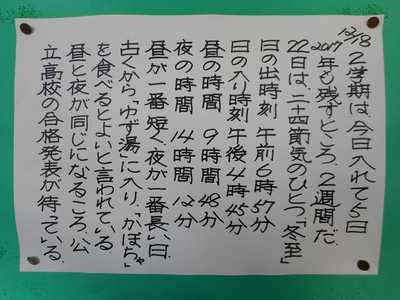 12/18
2学期は、今日入れて5日
2017年も残すところ、2週間だ。
22日は、二十四節気のひとつ「冬至」
日の出時刻 午前6時57分
日の入り時刻 午後4時45分
昼の時間 9時間48分
夜の時間 14時間12分
昼が一番短く、夜が一番長い日。
古くから「ゆず湯」に入り、「かぼちゃ」
を食べるとよいと言われている。
昼と夜が同じになるころ、公
立高校の合格発表が待っている。